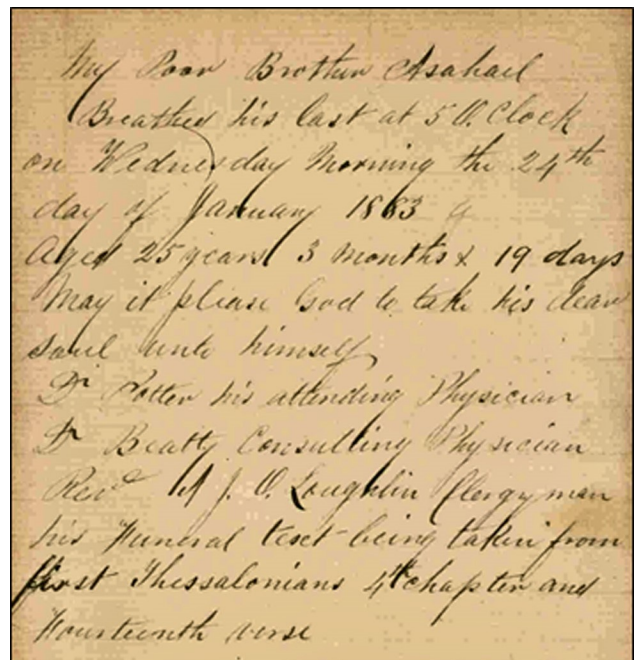 My Poor Brother Asahail
Breathed his last at 5 O. Clock
on Wednesday Morning the 24th
day of January 1883
Aged 25 years 3 months & 19 days
May it please God to take his dear
soul unto himself
Dr Potter his attending Physician
Dr Beatty Consulting Physician
Revd A J. O. Loughlin Clergyman
his Funeral text being taken from
first Thessalonians 4th chapter and
Fourteenth verse